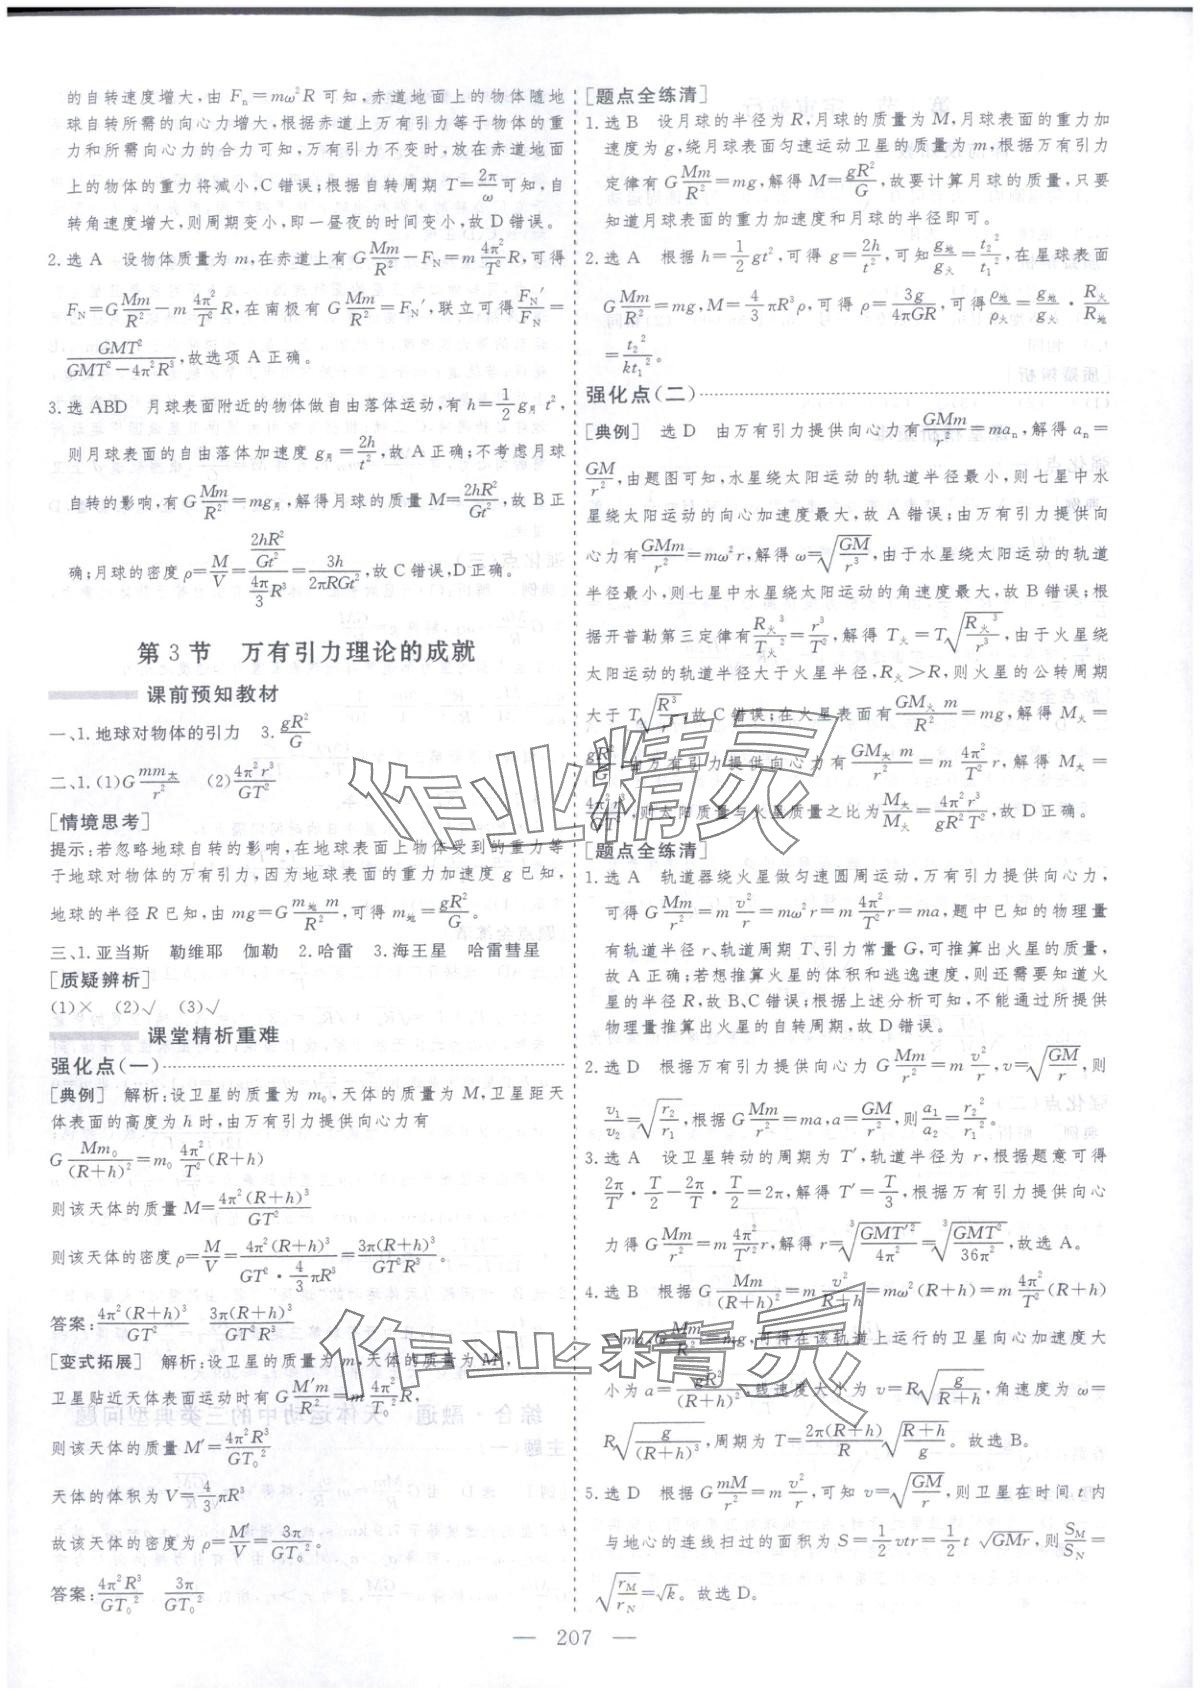 的自转速度增大,由 Fₙ=mω²R 可知,赤道地面上的物体随地
球自转所需的向心力增大,根据赤道上万有引力等于物体的重
力和所需向心力的合力可知,万有引力不变时,放在赤道地面
上的物体的重力将减小,C 错误;根据自转周期 T=2π/ω 可知,自
转角速度增大,则周期变小,即一昼夜的时间变小,故 D 错误。
2.选 A 设物体质量为 m,在赤道上有 G Mm/R²−F_N=m 4π²/T² R,可得
F_N=G Mm/R²−m 4π²/T² R,在南极有 G Mm/R²=F_N′,联立可得 F_N′/F_N=
GMT²/(GMT²−4π²R³),故选项 A 正确。
3.选 ABD 月球表面附近的物体做自由落体运动,有 h=1/2 g月 t²,
则月球表面的自由落体加速度 g月=2h/t²,故 A 正确;不考虑月球
自转的影响,有 G Mm/R²=mg月,解得月球的质量 M=2hR²/Gt²,故 B 正
确;月球的密度 ρ=M/V=(2hR²/Gt²)/(4π/3 R³)=3h/2πRGt²,故 C 错误,D 正确。
第 3 节 万有引力理论的成就
课前预知教材
一、1.地球对物体的引力 3. gR²/G
二、1.(1)G mm太/r² (2)4π²r³/GT²
[情境思考]
提示:若忽略地球自转的影响,在地球表面上物体受到的重力等
于地球对物体的万有引力,因为地球表面的重力加速度 g 已知,
地球的半径 R 已知,由 mg=G m地m/R²,可得 m地=gR²/G。
三、1.亚当斯 勒维耶 伽勒 2.哈雷 3.海王星 哈雷彗星
[质疑辨析]
(1)× (2)√ (3)√
课堂精析重难
强化点(一)
[典例] 解析:设卫星的质量为 m₀,天体的质量为 M,卫星距天
体表面的高度为 h 时,由万有引力提供向心力有
G Mm₀/(R+h)²=m₀ 4π²/T² (R+h)
则该天体的质量 M=4π²(R+h)³/GT²
则该天体的密度 ρ=M/V=4π²(R+h)³/(GT²·4/3 πR³)=3π(R+h)³/GT²R³。
答案:4π²(R+h)³/GT² 3π(R+h)³/GT²R³
[变式拓展] 解析:设卫星的质量为 m,天体的质量为 M′,
卫星贴近天体表面运动时有 G M′m/R²=m 4π²/T₀² R,
则该天体的质量 M′=4π²R³/GT₀²
天体的体积为 V=4/3 πR³
故该天体的密度为 ρ=M′/V=3π/GT₀²。
答案:4π²R³/GT₀² 3π/GT₀²
[题点全练清]
1.选 B 设月球的半径为 R,月球的质量为 M,月球表面的重力加
速度为 g,绕月球表面匀速运动卫星的质量为 m,根据万有引力
定律有 G Mm/R²=mg,解得 M=gR²/G,故要计算月球的质量,只要
知道月球表面的重力加速度和月球的半径即可。
2.选 A 根据 h=1/2 gt²,可得 g=2h/t²,可知 g地/g火=t₂²/t₁²,在星球表面
G Mm/R²=mg,M=4/3 πR³ρ,可得 ρ=3g/4πGR,可得 ρ地/ρ火=g地/g火·R火/R地
=t₂²/kt₁²。
强化点(二)
[典例] 选 D 由万有引力提供向心力有 GMm/r²=maₙ,解得 aₙ=
GM/r²,由题图可知,水星绕太阳运动的轨道半径最小,则七星中水
星绕太阳运动的向心加速度最大,故 A 错误;由万有引力提供向
心力有 GMm/r²=mω²r,解得 ω=√(GM/r³),由于水星绕太阳运动的轨道
半径最小,则七星中水星绕太阳运动的角速度最大,故 B 错误;根
据开普勒第三定律有 R火³/T火²=r³/T²,解得 T火=T√(R火³/r³),由于火星绕
太阳运动的轨道半径大于火星半径,R火>R,则火星的公转周期
大于 T√(R³/r³),故 C 错误;在火星表面有 GM火m/R²=mg,解得 M火=
gR²/G,由万有引力提供向心力有 GM太m/r²=m 4π²/T² r,解得 M太=
4π²r³/GT²,则太阳质量与火星质量之比为 M太/M火=4π²r³/gR²T²,故 D 正确。
[题点全练清]
1.选 A 轨道器绕火星做匀速圆周运动,万有引力提供向心力,
可得 G Mm/r²=m v²/r=mω²r=m 4π²/T² r=ma,题中已知的物理量
有轨道半径 r、轨道周期 T、引力常量 G,可推算出火星的质量,
故 A 正确;若想推算火星的体积和逃逸速度,则还需要知道火
星的半径 R,故 B、C 错误;根据上述分析可知,不能通过所提供
物理量推算出火星的自转周期,故 D 错误。
2.选 D 根据万有引力提供向心力 G Mm/r²=m v²/r,v=√(GM/r),则
v₁/v₂=√(r₂/r₁),根据 G Mm/r²=ma,a=GM/r²,则 a₁/a₂=r₂²/r₁²。
3.选 A 设卫星转动的周期为 T′,轨道半径为 r,根据题意可得
2π/T′·T/2−2π/T·T/2=2π,解得 T′=T/3,根据万有引力提供向心
力得 G Mm/r²=m 4π²/T′² r,解得 r=∛(GMT′²/4π²)=∛(GMT²/36π²),故选 A。
4.选 B 根据 G Mm/(R+h)²=m v²/(R+h)=mω²(R+h)=m 4π²/T² (R+h)
=ma,G Mm/R²=mg,可得在该轨道上运行的卫星向心加速度大
小为 a=gR²/(R+h)²,线速度大小为 v=R√(g/(R+h)),角速度为 ω=
R√(g/(R+h)³),周期为 T=2π(R+h)/R √((R+h)/g)。故选 B。
5.选 D 根据 G mM/r²=m v²/r,可知 v=√(GM/r),则卫星在时间 t 内
与地心的连线扫过的面积为 S=1/2 vtr=1/2 t √(GMr),则 S_M/S_N=
√(r_M/r_N)=√k。故选 D。
— 207 —
作业精灵
作业精灵